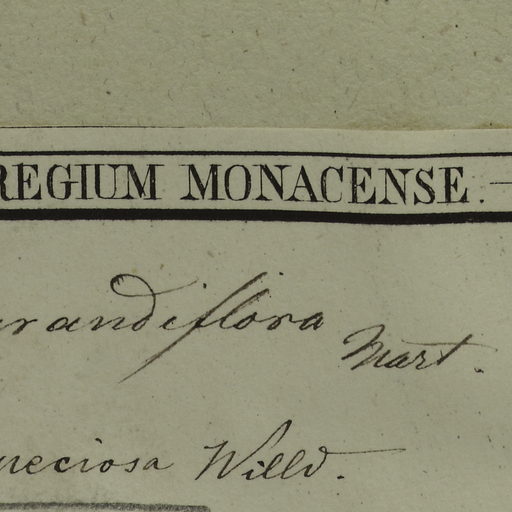 REGIUM MONACENSE. —
grandiflora Mart.
speciosa Willd.